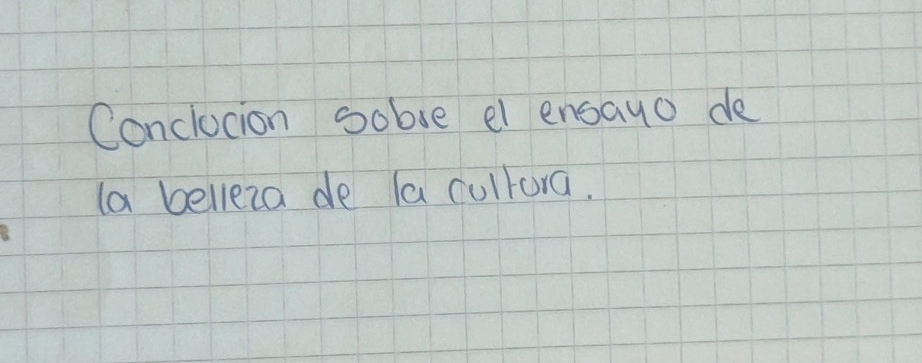 Conclucion sobre el ensayo de
la belleza de la cultura.